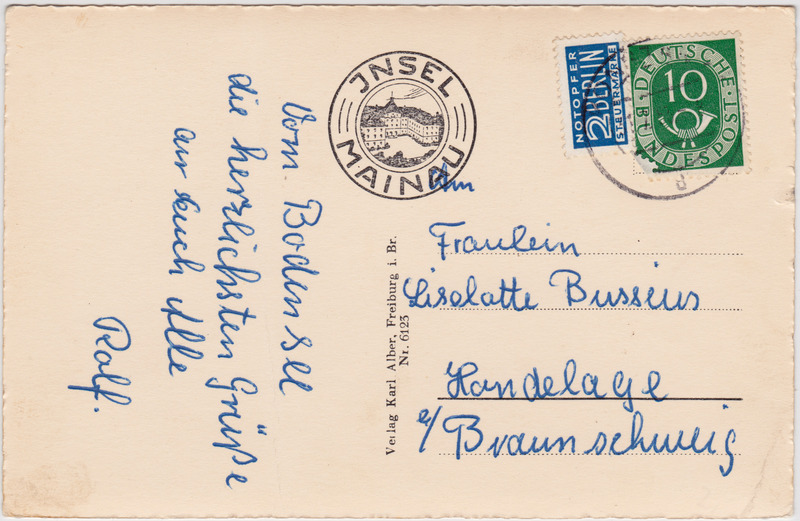 Vom Bodensee
die herzlichsten Grüße
an Euch Alle
Ralf.
JNSEL
MAINAU
Verlag Karl Alber, Freiburg i. Br.
Nr. 6123
NOTOPFER
2 BERLIN
STEUERMARKE
DEUTSCHE
10
BUNDESPOST
An
Fräulein
Liselotte Bussius
Hondelage
b/Braunschweig